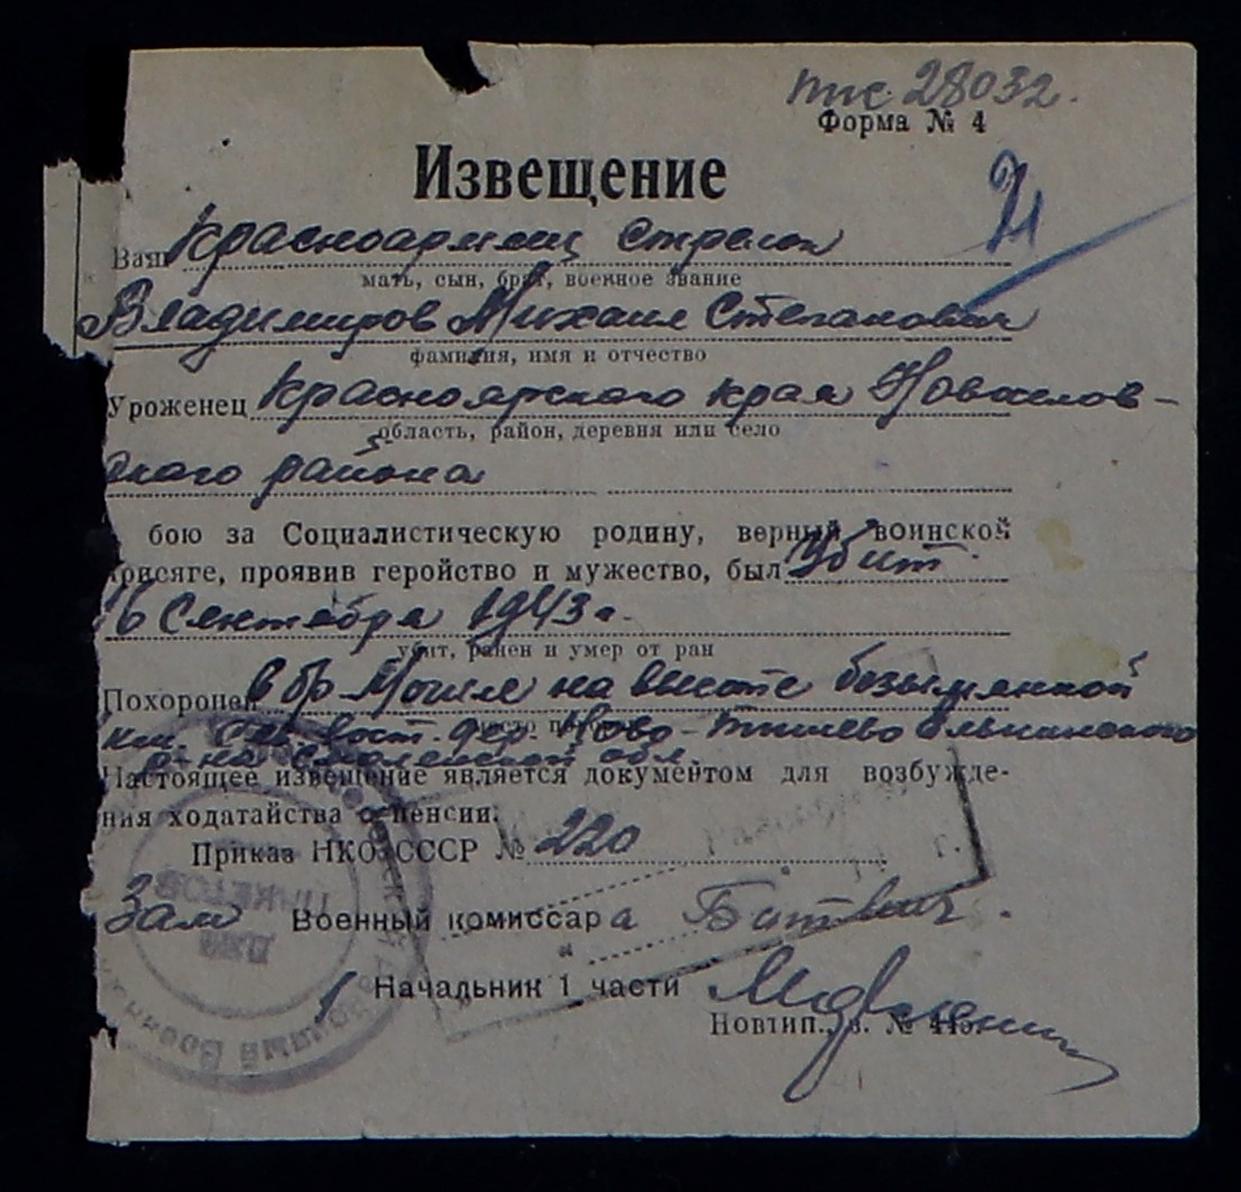 28032.
Форма № 4
Извещение
Ваш Красноармеец стрелок
мать, сын, брат, военное звание
Владимиров Михаил Степанович
фамилия, имя и отчество
Уроженец Красноярского края Новоселов-
область, район, деревня или село
ского района
бою за Социалистическую родину, верный воинской
присяге, проявив геройство и мужество, был Убит
16 Сентября 1943 г.
убит, ранен и умер от ран
Похоронен в бр. Могиле на высоте безымянной
км. Сев. вост. дер. Ново-Тишево Ельнинского
р-на Смоленской обл.
Настоящее извещение является документом для возбужде-
ния ходатайства о пенсии.
Приказ НКО СССР № 220
Зам Военный комиссара
Начальник 1 части
Новтип., з. №